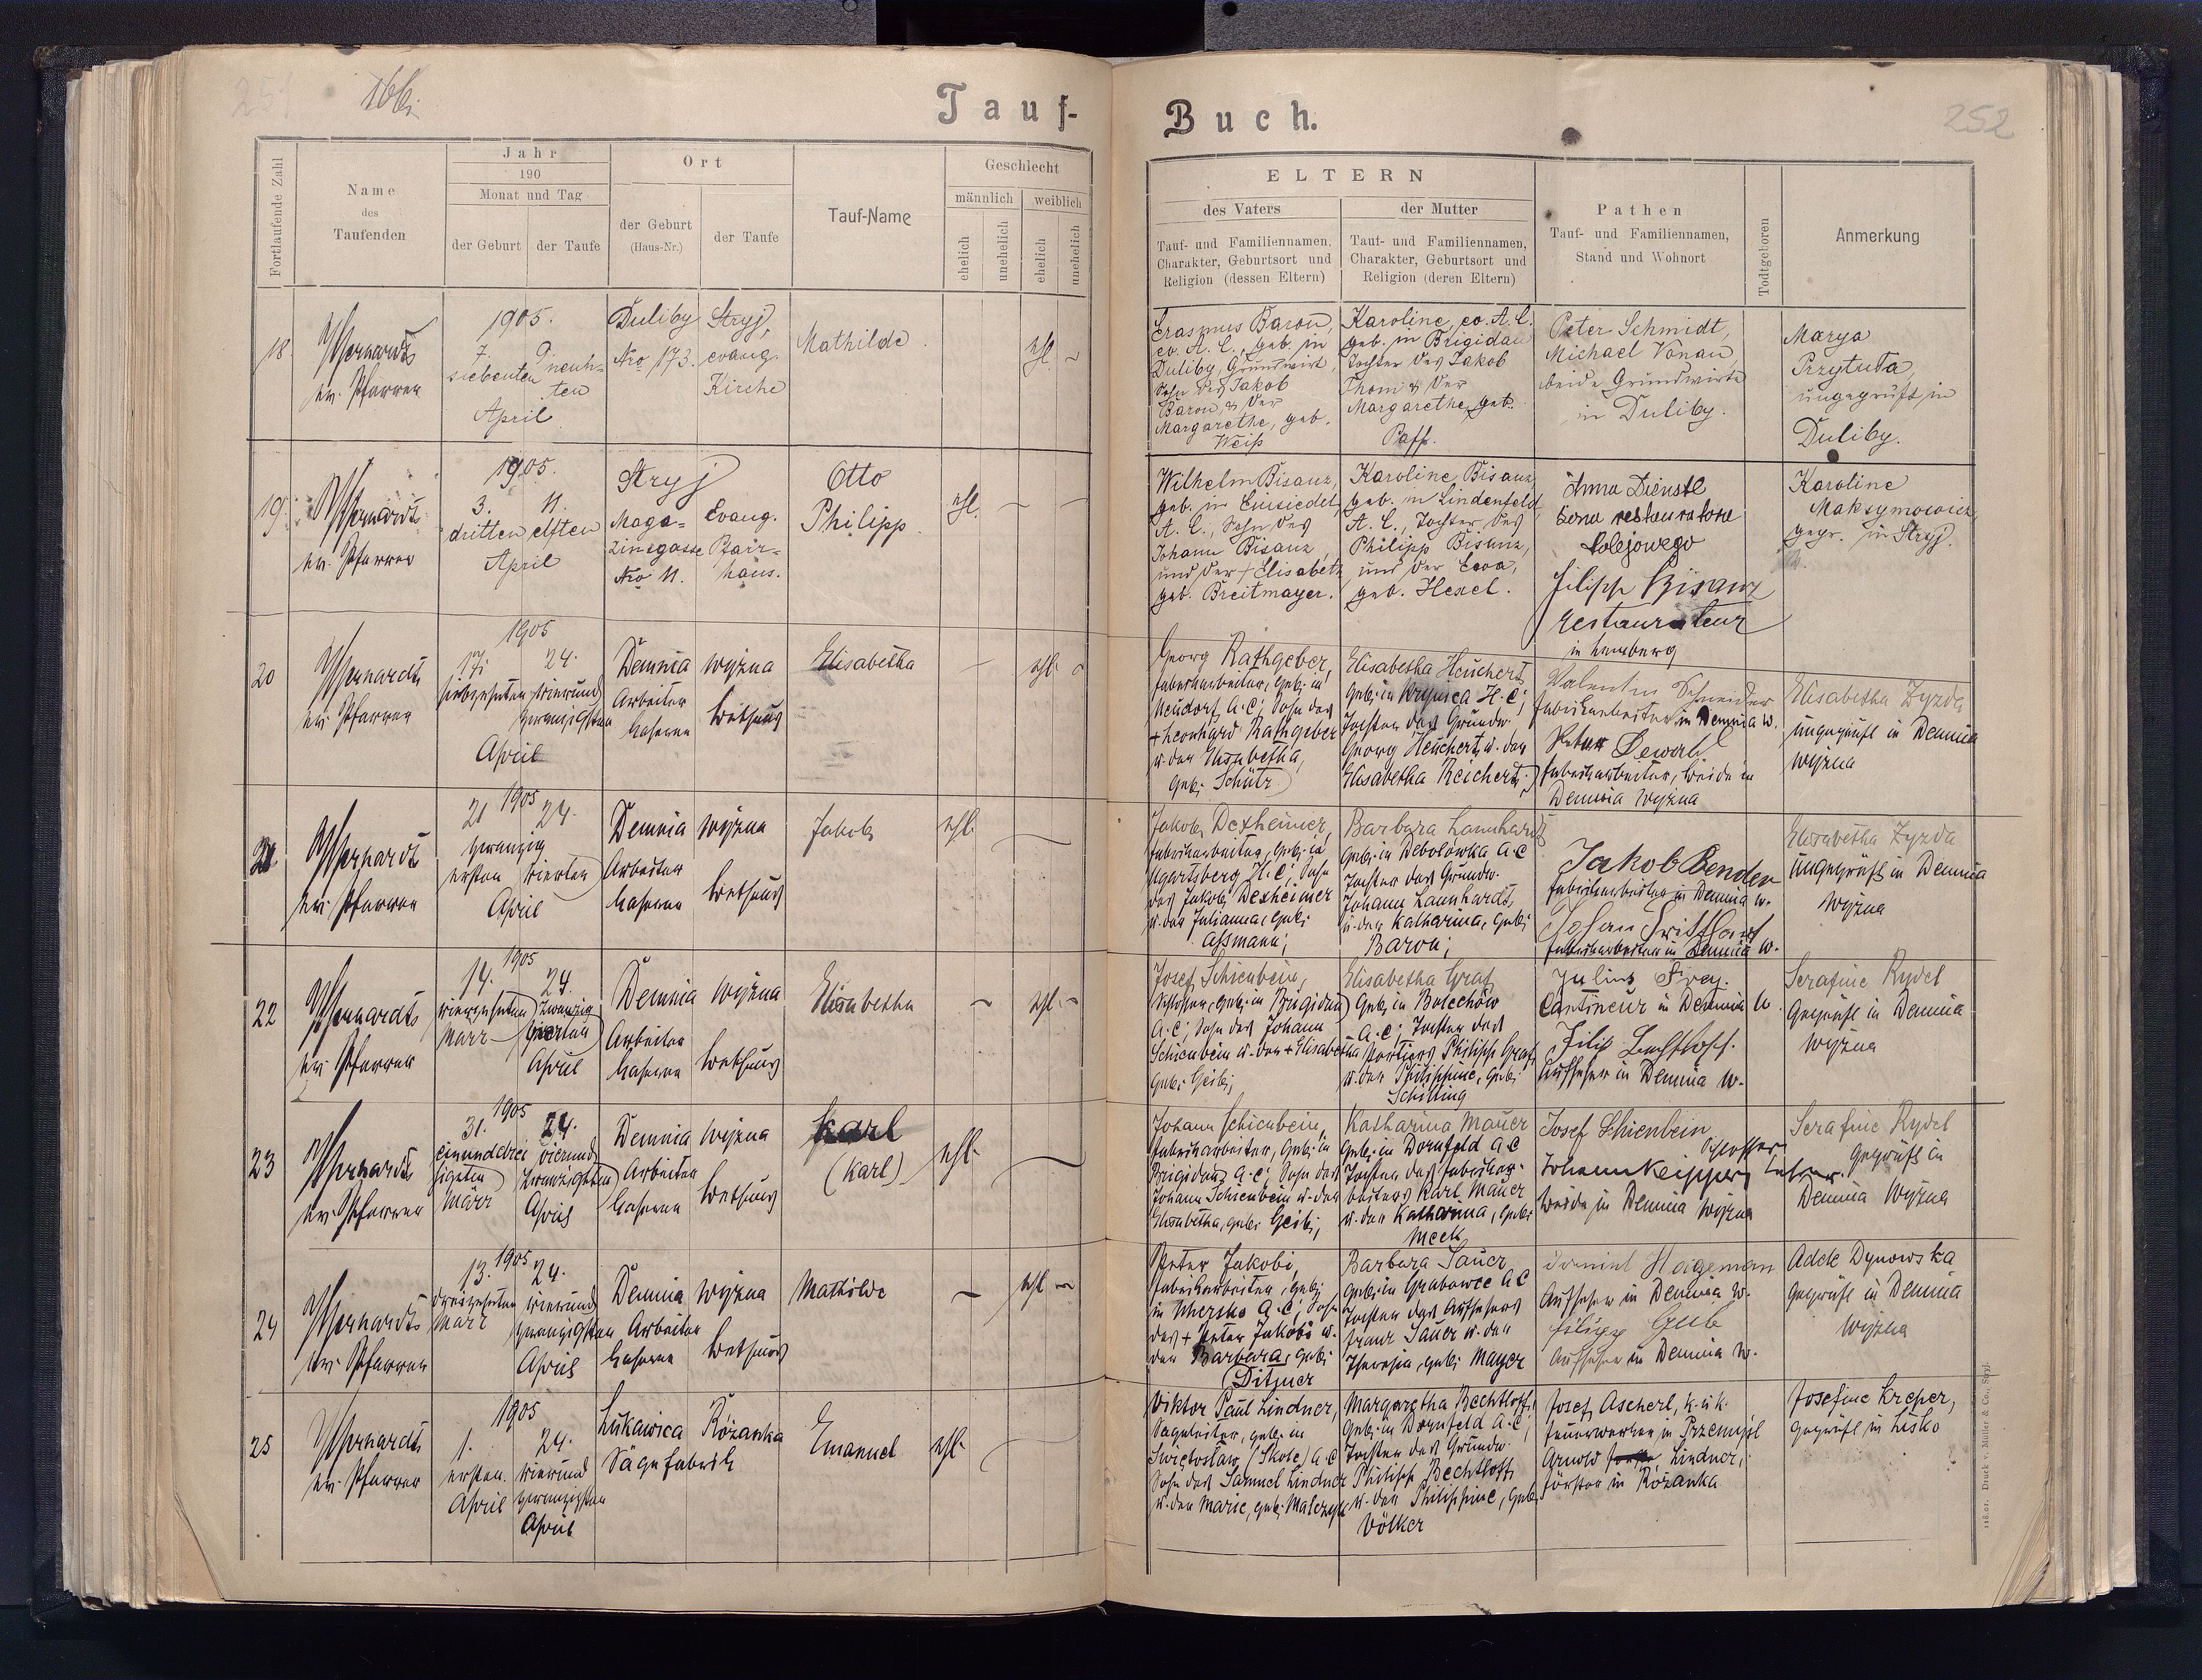 252
Tauf-
Buch.
Fortlaufende Zahl
Name
des
Taufenden
Jahr
190
Monat und Tag
der Geburt
der Taufe
Ort
der Geburt
(Haus-Nr.)
der Taufe
Tauf-Name
Geschlecht
männlich
weiblich
ehelich
unehelich
ehelich
unehelich
ELTERN
des Vaters
der Mutter
Tauf- und Familiennamen,
Charakter, Geburtsort und
Religion (dessen Eltern)
Tauf- und Familiennamen,
Charakter, Geburtsort und
Religion (deren Eltern)
Pathen
Tauf- und Familiennamen,
Stand und Wohnort
Todtgeboren
Anmerkung
18.
ev. Pfarrer
1905.
7. siebenten
9. neun-
ten
April
Duliby
Nro 173.
Stryj,
evang.
Kirche
Mathilde
ehl.
Erasmus Baron,
ev. A. C., geb. in
Duliby, Grundwirt,
Sohn des Jakob
Baron, & der
Margarethe, geb.
Weiß
Karoline, ev. A. C.
geb. in Brigidau
Tochter des Jakob
Thom & der
Margarethe, geb.
Paff.
Peter Schmidt,
Michael Vonau,
beide Grundwirte
in Duliby.
Marya
Przytuła,
ungeprüft, in
Duliby.
19.
ev. Pfarrer
1905.
3.
dritten
11.
elften
April
Stryj
Maga-
zinsgasse
Nro 11.
Evang.
Pfarr-
haus.
Otto
Philipp
ehl.
Wilhelm Bisanz,
geb. in Einsiedel,
A. C., Sohn des
Johann Bisanz,
und der † Elisabeth
geb. Breitmayer.
Karoline Bisanz
geb. in Lindenfeld,
A. C., Tochter des
Philipp Bisanz,
und der Eva,
geb. Hexel.
Anna Dienstl
żona restauratora
kolejowego
Filipp Bisanz
restaurateur
in Lemberg
Karoline
Maksymowicz,
gepr. in Stryj.
20
ev. Pfarrer
1905
17.
siebzehnten
24.
vierund
zwanzigsten
April
Demnia wyżna
Arbeiter
Caserne
Bethaus
Elisabetha
ehl.
Georg Rathgeber,
Fabriksarbeiter, geb. in
Neudorf, A. C.; Sohn des
+ Leonhard Rathgeber
u. der Elisabetha,
geb. Schütz
Elisabetha Heuchert,
geb. in H. C.;
Tochter des Grundw.
Georg Heuchert, u. der
Elisabetha Reichert;
Valentin Schneider
Fabriksarbeiter in Demnia w.
Peter
Fabriksarbeiter, beide in
Demnia wyżna
Elisabetha Zyzda
ungeprüft in Demnia
wyżna
21
ev. Pfarrer
1905
21
zwanzig
ersten
24.
vierten
April
Demnia wyżna
Arbeiter
Caserne
Bethaus
Jakob
ehl.
Jakob Dexheimer,
Fabriksarbeiter, geb. in
Ugartsberg H. C.; Sohn
des Jakob Dexheimer
u. der Julianna, geb.
Assmann;
Barbara Lannhardt
geb. in Debolówka A. C
Tochter des Grundw.
Johann Lannhardt,
u. der Katharina, geb.
Baron;
Jakob Bender
Fabriksarbeiter in Demnia w.
Johan
Fabriksarbeiter in Demnia w.
Elisabetha Zyzda
ungeprüft in Demnia
wyżna
22
ev. Pfarrer
1905
14.
vierzehnten
März
24.
zwanzig
vierten
April
Demnia wyżna
Arbeiter
Caserne
Bethaus
Elisabetha
ehl.
Josef Schienbein,
Schlosser, geb. in Brigidau
A. C.; Sohn des Johann
Schienbein u. der + Elisabetha
geb. Geib;
Elisabetha Graf,
geb. in Bolechów
A. C.; Tochter des
Portiers Philipp Graf,
u. der Philippine, geb.
Schilling
Julius Frey.
Cantineur in Demnia w.
Filip Bechtloff.
Aufseher in Demnia w.
Serafine Rydel
geprüft in Demnia
wyżna
23
ev. Pfarrer
1905
31.
einunddrei
sigsten
März
24.
vierund
zwanzigsten
April
Demnia wyżna
Arbeiter
Caserne
Bethaus
Karl
(Karl)
ehl.
Johann Schienbein,
Fabriksarbeiter, geb. in
Brigidau, A. C.; Sohn des
Johann Schienbein u. der
Elisabetha, geb. Geib;
Katharina Mauer
geb. in Dornfeld A C
Tochter des Fabriksar-
beiters Karl Mauer
u. der Katharina, geb.
Meck
Josef Schienbein
Schlosser
Johann Keipper, Lehrer.
beide in Demnia wyżna
Serafine Rydel
geprüft in
Demnia Wyżna
24
ev. Pfarrer
1905
13.
dreizehnten
März
24.
vierund
zwanzigsten
April
Demnia wyżna
Arbeiter
Caserne
Bethaus
Mathilde
ehl.
Peter Jakobi,
Fabriksarbeiter, geb.
in Uhersko A. C.; Sohn
des + Peter Jakobi u.
der Barbara, geb.
Ditzner
Barbara Sauer
geb. in Grabowce A C
Tochter des Aufsehers
Franz Sauer u. der
Theresia, geb. Mayer
Hageman
Aufseher in Demnia w.
Filipp Gub
Aufseher in Demnia w.
Adele Dynowska
geprüft in Demnia
wyżna
25
ev. Pfarrer
1905
1.
ersten
April
24.
vierund
zwanzigsten
April
Łukawica
Sägefabrik
Różanka
Emanuel
ehl.
Viktor Paul Lindner,
Sägeleiter, geb. in
Swiętosław (Skole) A. C
Sohn des Samuel Lindner
u. der Marie, geb. Malczyk
Margaretha Bechtloff,
geb. in Dornfeld A. C.;
Tochter des Grundw.
Philipp Bechtloff
u. der Philippine, geb.
Völker
Josef Ascherl, k. u k.
Feuerwerker in Przemysl
Arnold Lindner,
Förster in Różanka
Josefine Kreper,
geprüft in Lisko
118.01. Druck v. Müller & Co., Stryj.